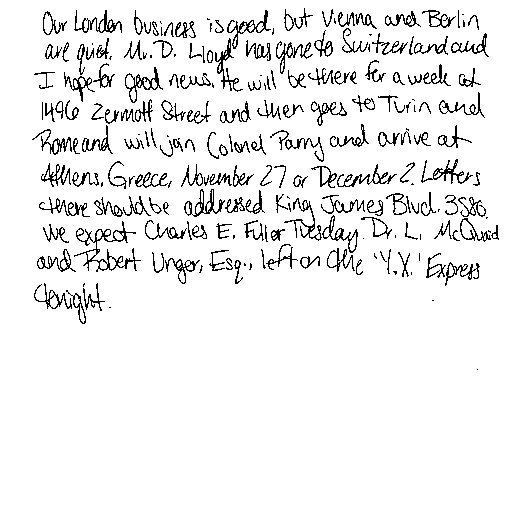 Our London business is good, but Vienna and Berlin
are quiet. Mr. D. Lloyd has gone to Switzerland and
I hope for good news. He will be there for a week at
1496 Zermott Street and then goes to Turin and
Rome and will join Colonel Parry and arrive at
Athens, Greece, November 27 or December 2. Letters
there should be addressed King James Blvd. 3580.
We expect Charles E. Fuller Tuesday. Dr. L. McQuaid
and Robert Unger, Esq., left on the 'Y.X.' Express
tonight.